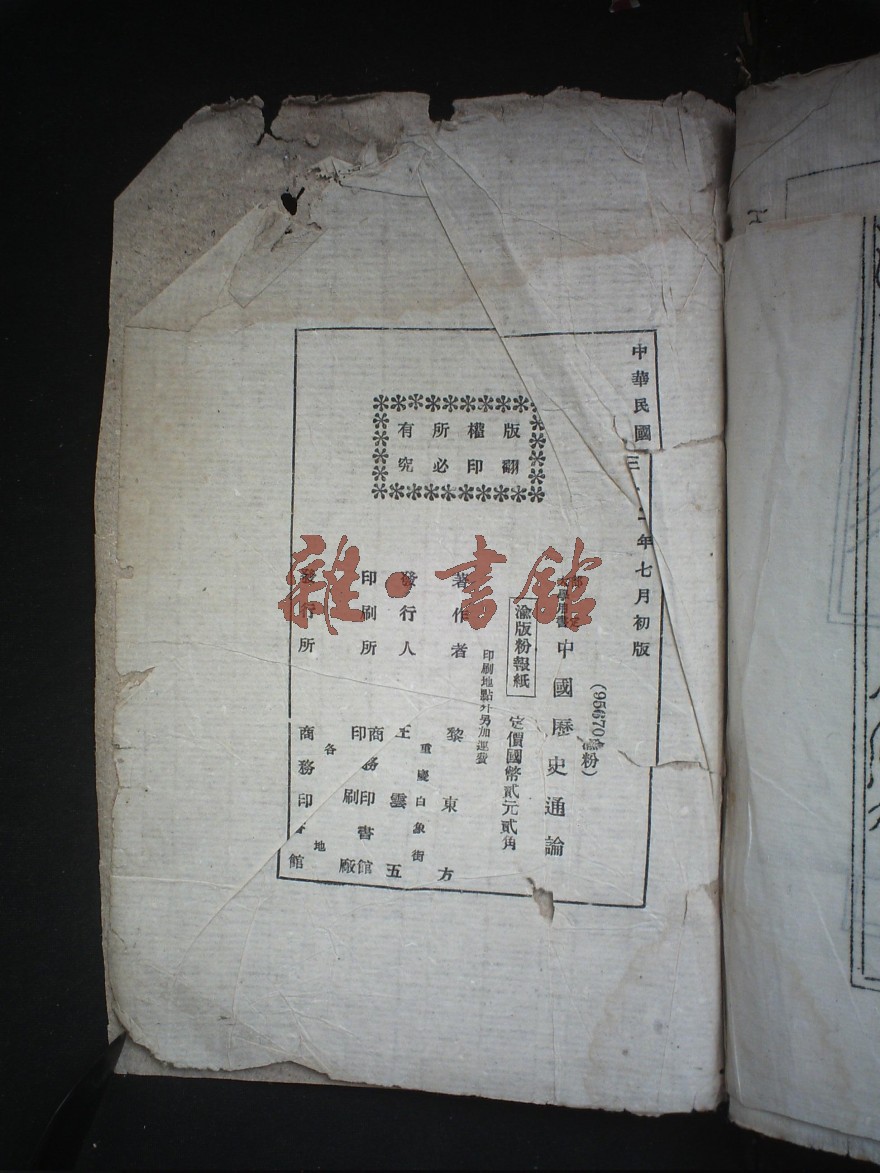 中華民國三二年七月初版
(95670渝粉)
大學用書
中國歷史通論
渝版粉報紙
定價國幣貳元貳角
印刷地點外另加運費
著作者
黎東方
發行人
重慶白象街
王雲五
印刷所
商務印書館
印刷廠
發行所
各地
商務印書館
版權所有
翻印必究
雜·書館